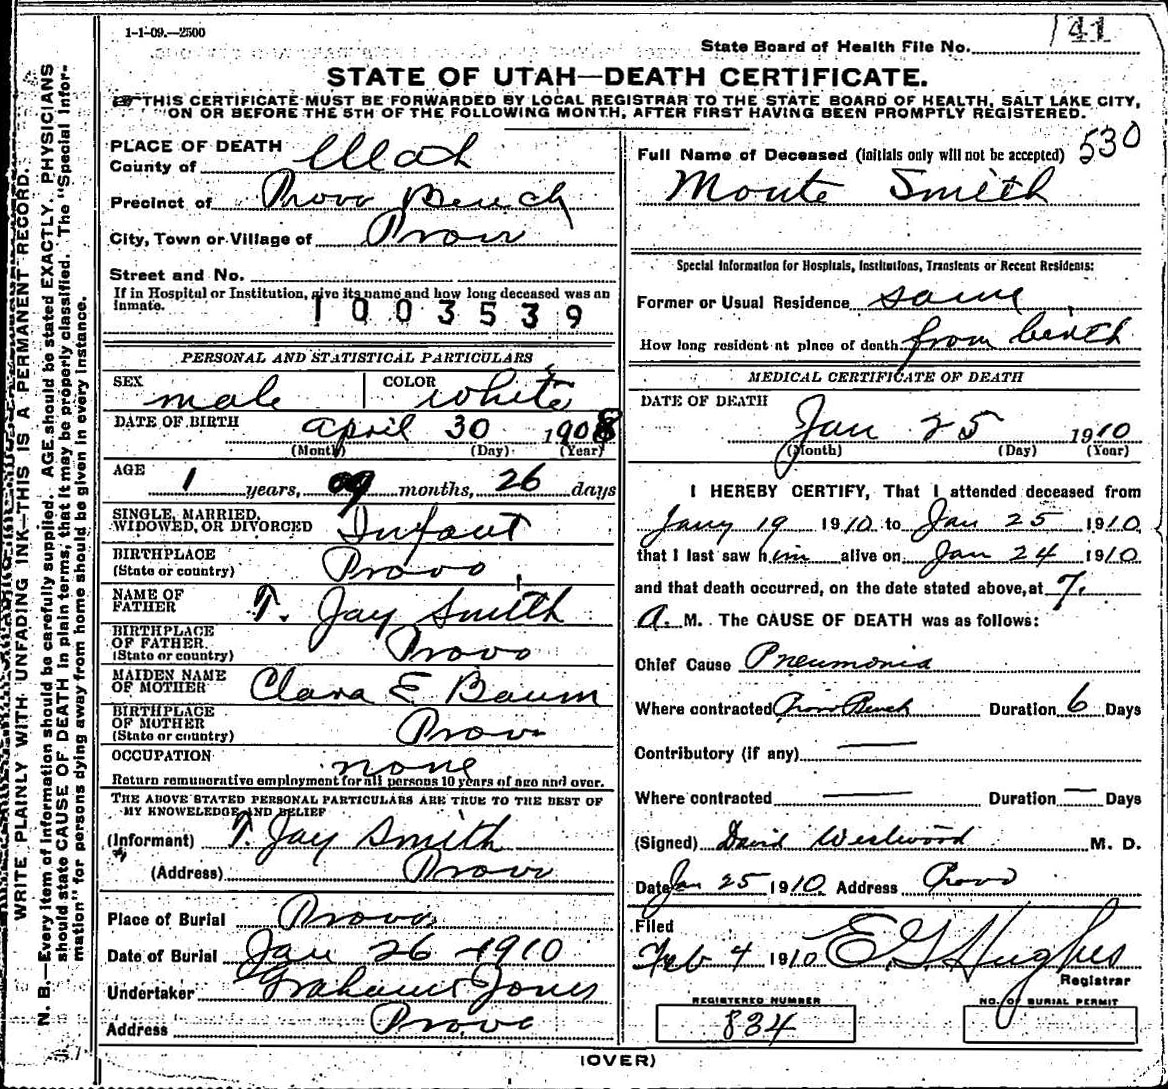 1-1-09.—2500
State Board of Health File No. 41
STATE OF UTAH—DEATH CERTIFICATE.
THIS CERTIFICATE MUST BE FORWARDED BY LOCAL REGISTRAR TO THE STATE BOARD OF HEALTH, SALT LAKE CITY,
ON OR BEFORE THE 5TH OF THE FOLLOWING MONTH, AFTER FIRST HAVING BEEN PROMPTLY REGISTERED.
WRITE PLAINLY WITH UNFADING INK—THIS IS A PERMANENT RECORD.
N. B.—Every item of information should be carefully supplied. AGE should be stated EXACTLY. PHYSICIANS
should state CAUSE OF DEATH in plain terms, that it may be properly classified. The "Special Infor-
mation" for persons dying away from home should be given in every instance.
PLACE OF DEATH
County of Utah
Precinct of Provo Bench
City, Town or Village of Provo
Street and No.
If in Hospital or Institution, give its name and how long deceased was an
Inmate.
1003539
PERSONAL AND STATISTICAL PARTICULARS
SEX male COLOR white
DATE OF BIRTH april 30 1908
(Month) (Day) (Year)
AGE 1 years, 09 months, 26 days
SINGLE, MARRIED,
WIDOWED, OR DIVORCED Infant
BIRTHPLACE
(State or country) Provo
NAME OF
FATHER T. Jay Smith
BIRTHPLACE
OF FATHER
(State or country) Provo
MAIDEN NAME
OF MOTHER Clara E Baum
BIRTHPLACE
OF MOTHER
(State or country) Provo
OCCUPATION none
Return remunerative employment for all persons 10 years of age and over.
THE ABOVE STATED PERSONAL PARTICULARS ARE TRUE TO THE BEST OF
MY KNOWELEDGE AND BELIEF
(Informant) T. Jay Smith
(Address) Provo
Place of Burial Provo
Date of Burial Jan 26 1910
Undertaker Graham Jones
Address Provo
530
Full Name of Deceased (initials only will not be accepted)
Monte Smith
Special Information for Hospitals, Institutions, Transients or Recent Residents:
Former or Usual Residence same
How long resident at place of death from birth
MEDICAL CERTIFICATE OF DEATH
DATE OF DEATH
Jan 25 1910
(Month) (Day) (Year)
I HEREBY CERTIFY, That I attended deceased from
Jany 19 1910 to Jan 25 1910
that I last saw him alive on Jan 24 1910
and that death occurred, on the date stated above, at 7.
A. M. The CAUSE OF DEATH was as follows:
Chief Cause Pneumonia
Where contracted Provo Bench Duration 6 Days
Contributory (if any) —
Where contracted — Duration — Days
(Signed) David Westwood M. D.
Date Jan 25 1910 Address Provo
Filed
Feb 4 1910 E G Hughes
Registrar
REGISTERED NUMBER
834
NO. OF BURIAL PERMIT
(OVER)